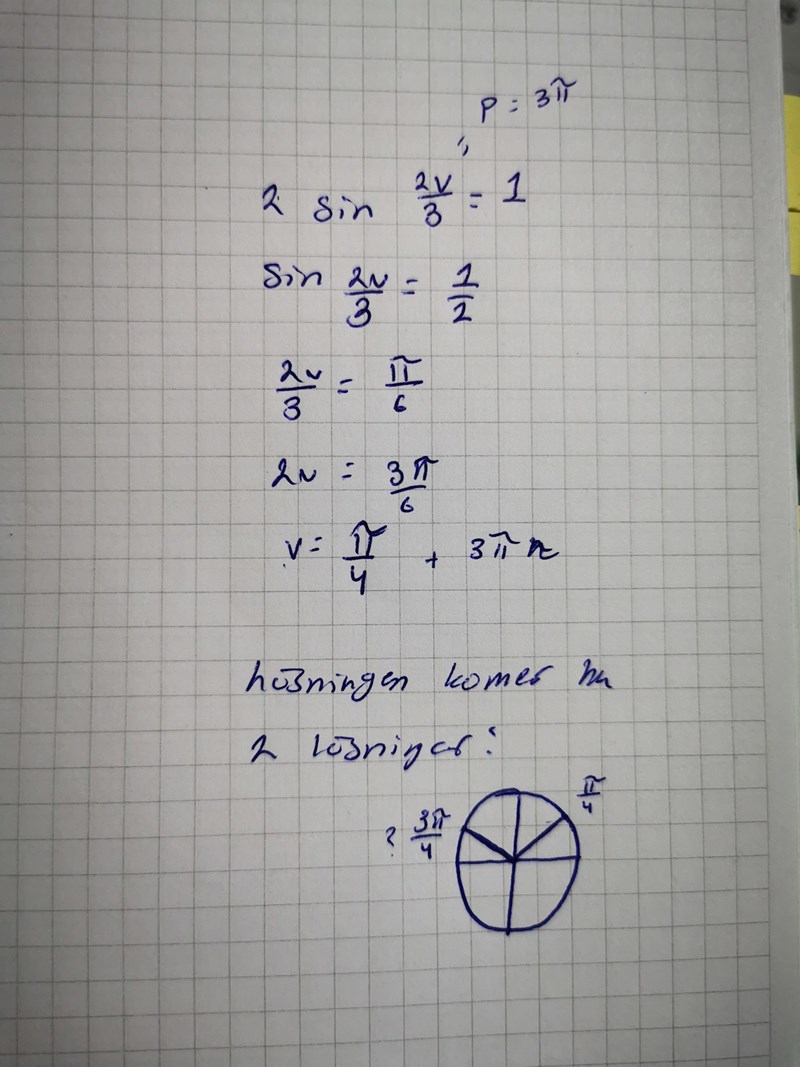 p = 3π
2 sin 2v/3 = 1
sin 2v/3 = 1/2
2v/3 = π/6
2v = 3π/6
v = π/4 + 3πn
Lösningen komer ha
2 lösningar:
π/4
? 3π/4